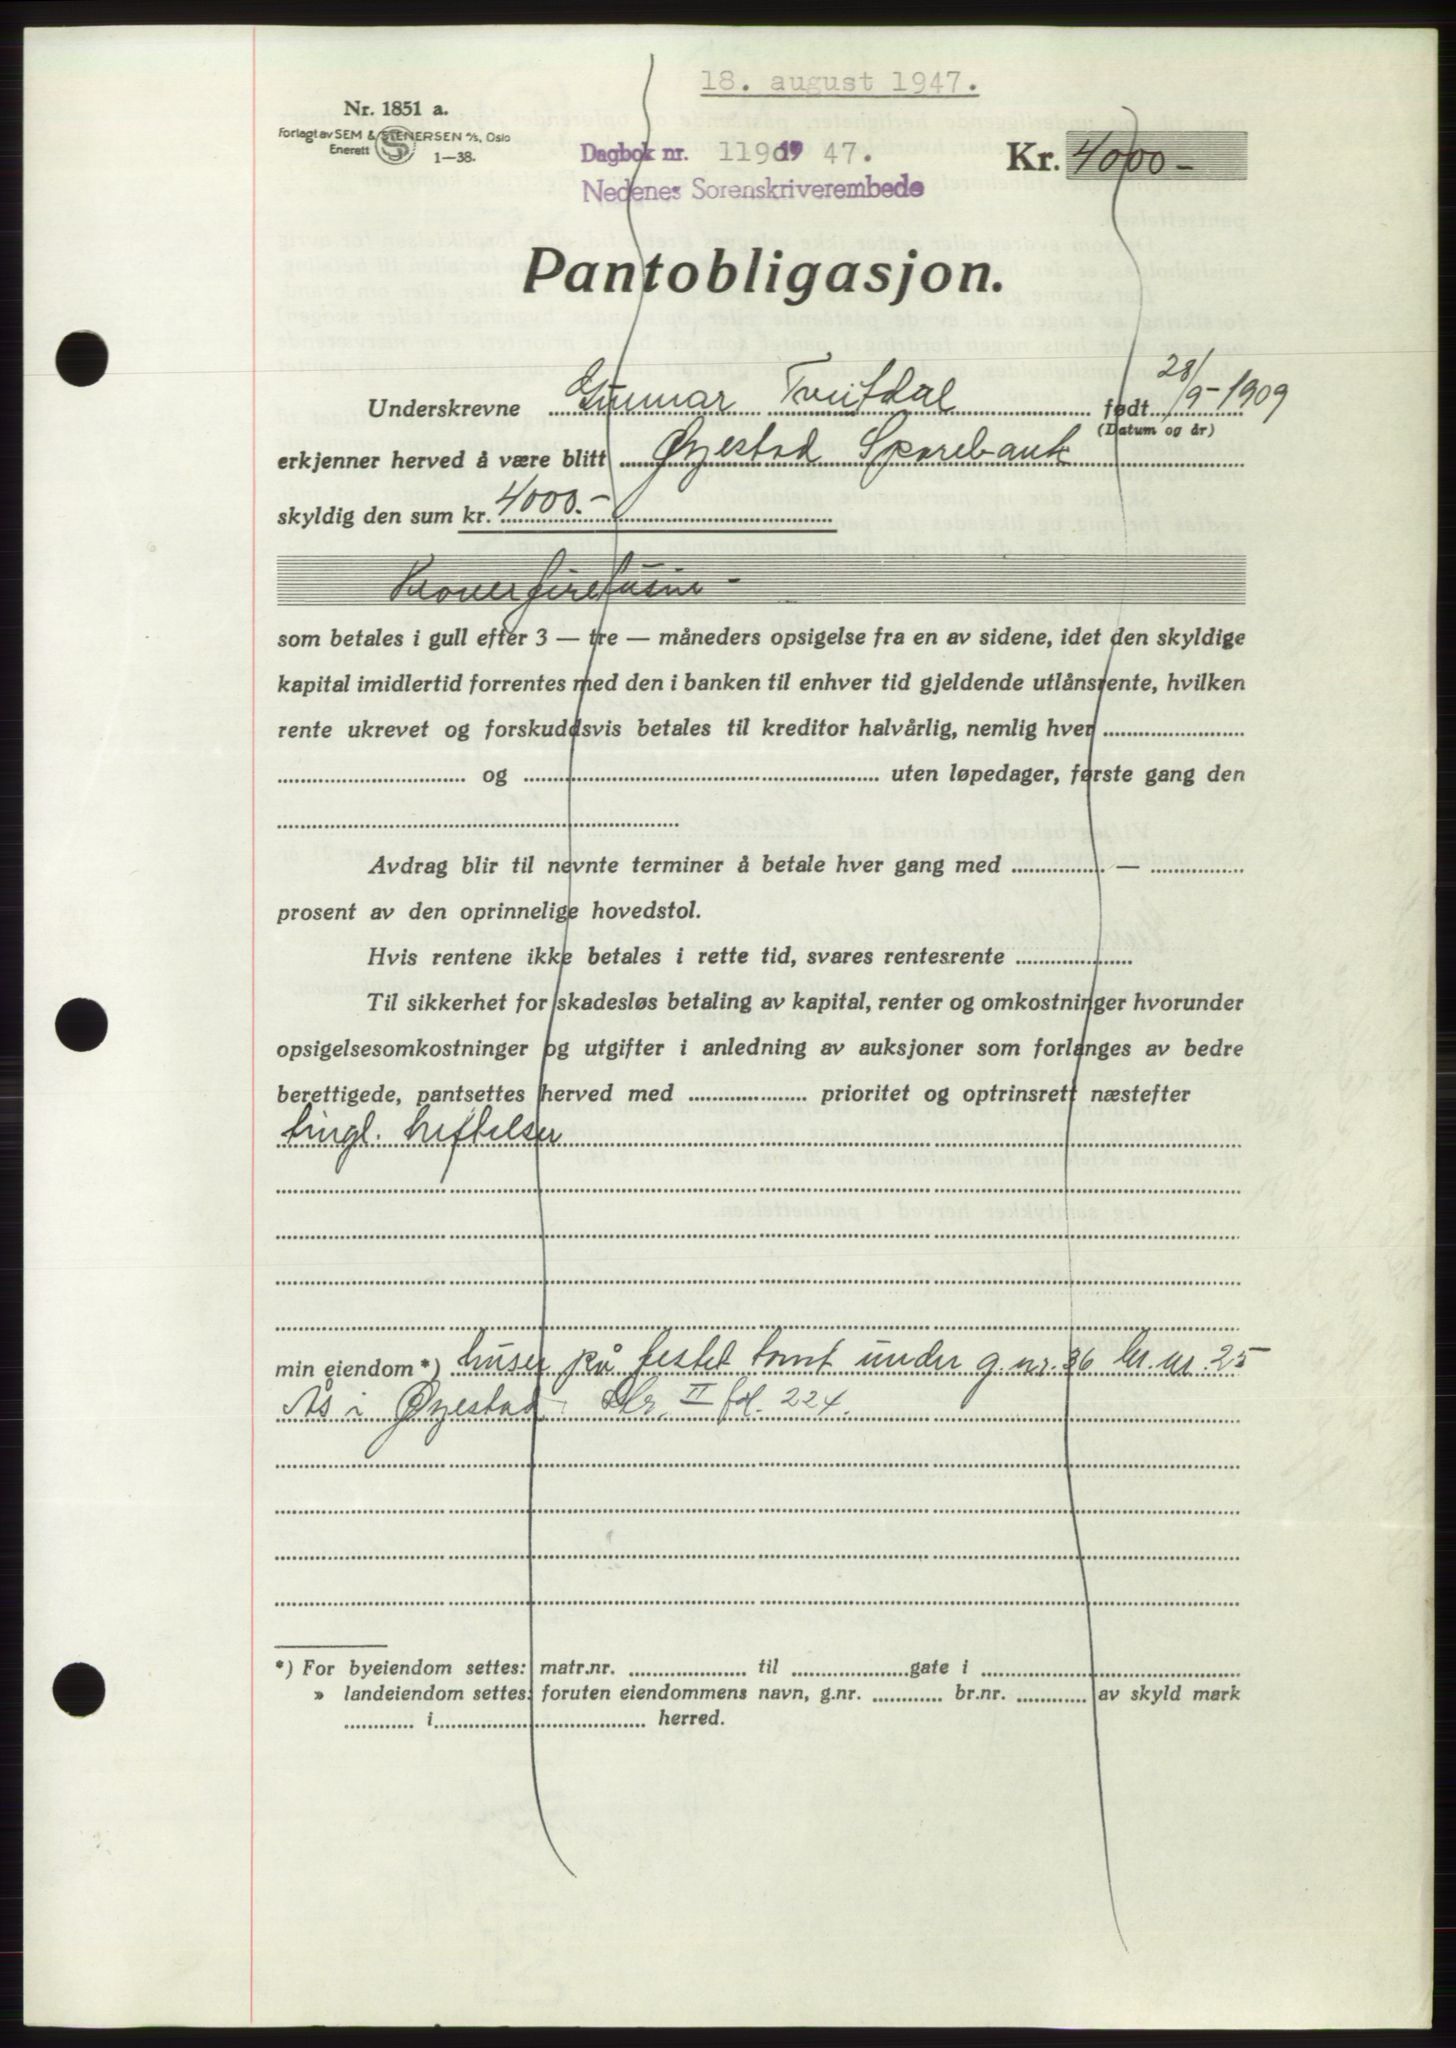 18. august 1947.
Nr. 1851 a.
Forlagt av SEM & STENERSEN A/S, Oslo
Enerett 1—38.
Dagbok nr. 1190 19 47.
Nedenes Sorenskriverembede
Kr. 4000 —
Pantobligasjon.
Underskrevne Gunnar Tveitdal født 28/9-1909
(Datum og år)
erkjenner herved å være blitt Øyestad Sparebank
skyldig den sum kr. 4000.—
Kroner firetusine —
som betales i gull efter 3 — tre — måneders opsigelse fra en av sidene, idet den skyldige
kapital imidlertid forrentes med den i banken til enhver tid gjeldende utlånsrente, hvilken
rente ukrevet og forskuddsvis betales til kreditor halvårlig, nemlig hver
og uten løpedager, første gang den
Avdrag blir til nevnte terminer å betale hver gang med —
prosent av den oprinnelige hovedstol.
Hvis rentene ikke betales i rette tid, svares rentesrente
Til sikkerhet for skadesløs betaling av kapital, renter og omkostninger hvorunder
opsigelsesomkostninger og utgifter i anledning av auksjoner som forlanges av bedre
berettigede, pantsettes herved med prioritet og optrinsrett næstefter
tingl. heftelser
min eiendom *) huser på festet tomt under g.nr. 36 br.nr. 25
Ås i Øyestad. II fol. 224.
*) For byeiendom settes: matr.nr. til gate i
» landeiendom settes: foruten eiendommens navn, g.nr. br.nr. av skyld mark
i herred.